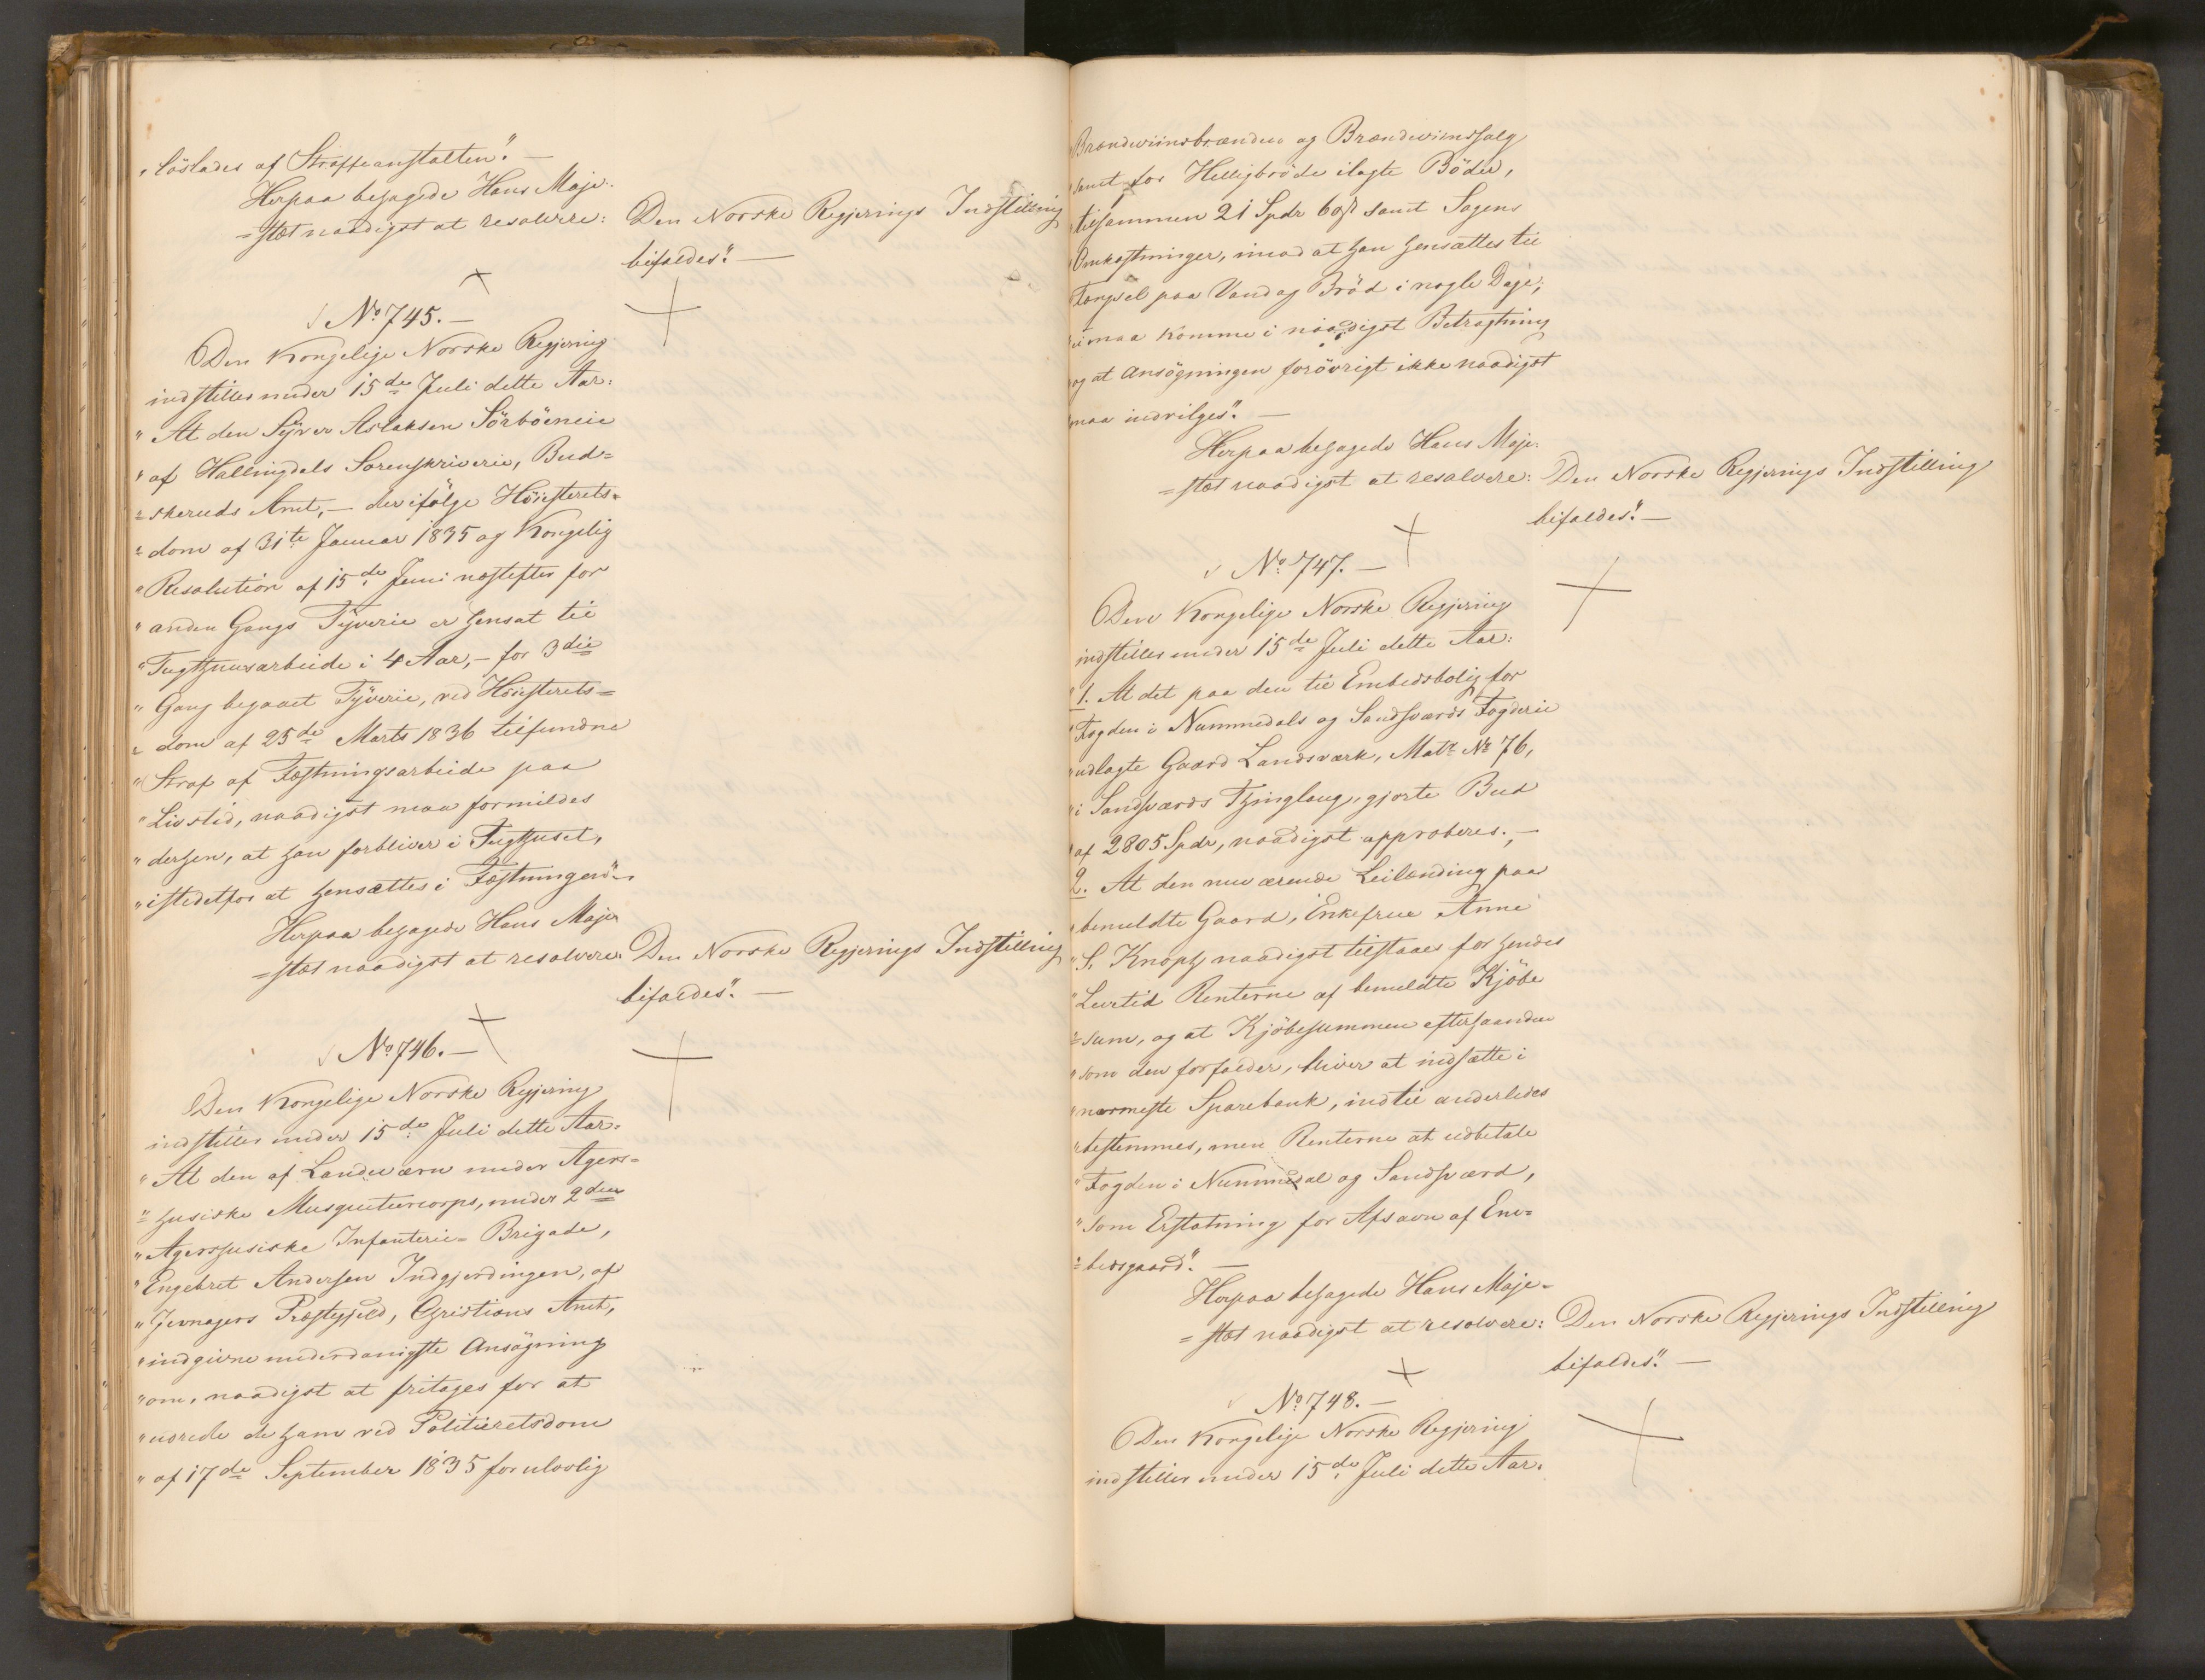 „löslades af Straffeanstalten”. —
Herpaa behagede Hans Maje-
=stæt naadigst at resolvere: Den Norske Regjerings Indstilling
bifaldes”. —
No 745. —
Den Kongelige Norske Regjering
indstiller under 15de Juli dette Aar:
„At den Syver Aslaksen Sörböeneie
„af Hallingdals Sorenskriverie, Bud=
=skeruds Amt, — der ifölge Höiesterets=
=dom af 31te Januar 1835 og Kongelig
„Resolution af 15de Juni næstefter for
„anden Gangs Tyverie er hensat til
„Tugthuusarbeide i 4 Aar, — for 3die
„Gang begaaet Tyverie, ved Höiesterets=
=dom af 25de Marts 1836 tilfundne
„Straf af Fæstningsarbeide paa
„Livstid, naadigst maa formildes
„derhen, at han forbliver i Tugthuset,
„istedetfor at hensættes i Fæstningen”. —
Herpaa behagede Hans Maje-
=stæt naadigst at resolvere: Den Norske Regjerings Indstilling
bifaldes”. —
No 746. —
Den Kongelige Norske Regjering
indstiller under 15de Juli dette Aar:
„At den af Landeværn under Agers=
=husiske Musqueteercorps, under 2den
„Agershusiske Infanterie= Brigade,
„Engebret Andersen Indgjerdingen, af
„Jevnagers Præstegjeld, Christians Amt,
„indgivne underdanigste Ansögning
„om, naadigst at fritages for at
„udrede de ham ved Politieretsdom
„af 17de September 1835 for ulovlig
„Brændeviinsbrænden og Brændeviinssalg
„samt for Helligbröde ilagte Böder,
„tilsammen 21 Spdr 60 ß samt Sagens
„Omkostninger, imod at han hensættes til
„Fængsel paa Vand og Bröd i nogle Dage,
„ei maa komme i naadigst Betragtning
„og at Ansögningen forövrigt ikke naadigst
„maa indvilges”. —
Herpaa behagede Hans Maje-
=stæt naadigst at resolvere: Den Norske Regjerings Indstilling
bifaldes”. —
No 747. —
Den Kongelige Norske Regjering
indstiller under 15de Juli dette Aar:
„1. At det paa den til Embedsbolig for
„Fogden i Nummedals og Sandsværds Fogderie
„udlagte Gaard Landsværk, Matr No 76,
„i Sandsværds Thinglaug, gjorte Bud
„af 2805 Spdr, naadigst approberes. —
„2. At den nuværende Leilænding paa
„bemeldte Gaard, Enkefrue Anne
„S. Knoph naadigst tilstaaes for hendes
„Levetid Renterne af bemeldte Kjöbe
=sum, og at Kjöbesummen efterhaanden
„som den forfalder, bliver at indsætte i
„nærmeste Sparebank, indtil anderledes
„bestemmes, men Renterne at udbetale
„Fogden i Nummedal og Sandsværd,
„som Erstatning for Afsavn af Em=
=bedsgaard”. —
Herpaa behagede Hans Maje-
=stæt naadigst at resolvere: Den Norske Regjerings Indstilling
bifaldes”. —
No 748. —
Den Kongelige Norske Regjering
indstiller under 15de Juli dette Aar: